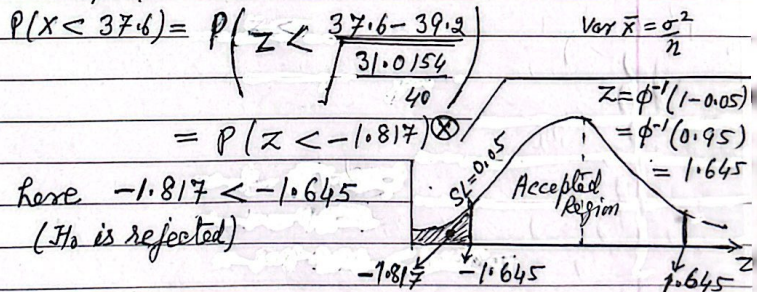 P(X < 37.6) = P(Z < (37.6 - 39.2) / √(31.0154 / 40))
Var x̄ = σ²/n
= P(Z < -1.817) ⊗
Z = φ⁻¹(1-0.05)
= φ⁻¹(0.95)
= 1.645
here -1.817 < -1.645
(H₀ is rejected)
SL=0.05
Accepted
Region
-1.817 -1.645 1.645 Z